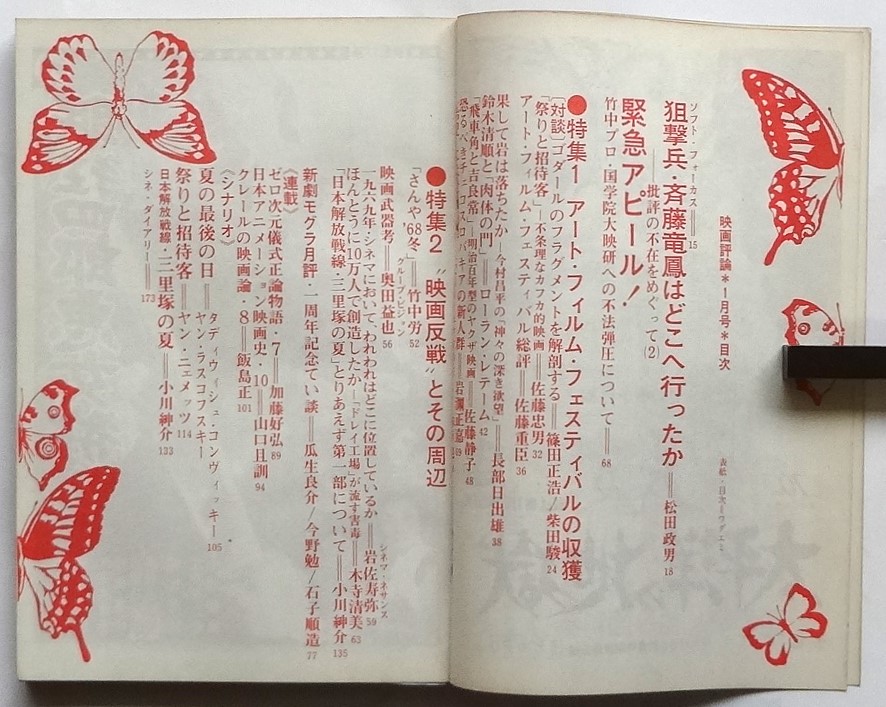 映画評論*1月号*目次
表紙・目次=ウダエミ
ソフト・フォーカス 15
狙撃兵・斉藤竜鳳はどこへ行ったか=松田政男 18
―批評の不在をめぐって(2)
緊急アピール!
竹中プロ・国学院大映研への不法弾圧について=68
●特集1 アート・フィルム・フェスティバルの収穫
〔対談〕ゴダールのフラグメントを解剖する=篠田正浩/柴田駿 24
「祭りと招待客」―不条理なカフカ的映画=佐藤忠男 32
アート・フィルム・フェスティバル総評=佐藤重臣 36
果して岩は落ちたか―今村昌平の「神々の深き欲望」=長部日出雄 38
鈴木清順と「肉体の門」=ローラン・レテーム 42
「飛車角と吉良常」―明治百年型のヤクザ映画=佐藤静子 48
恐るべきチェコスロバキアの新人群=岩淵正嘉 49
●特集2 “映画反戦”とその周辺
「さんや'68冬」=竹中労 52
映画武器考=奥田益也 56
グループ・ビジョン
一九六九年・シネマにおいて、われわれはどこに位置しているか=岩佐寿弥 59
シネマ・ネサンス
ほんとうに10万人で創造したか―「ドレイ工場」が流す害毒=木寺清美 63
「日本解放戦線・三里塚の夏」とりあえず第一部について=小川紳介 135
新劇モグラ月評・一周年記念てい談=瓜生良介/今野勉/石子順造 77
《連載》
ゼロ次元儀式正論物語・7=加藤好弘 89
日本アニメーション映画史・10=山口且訓 94
クレールの映画論・8=飯島正 101
《シナリオ》
夏の最後の日=タディウィシュ・コンヴィッキー 105
ヤン・ラスコフスキー
祭りと招待客=ヤン・ニェメッツ 114
日本解放戦線・三里塚の夏=小川紳介 133
シネ・ダイアリー=173